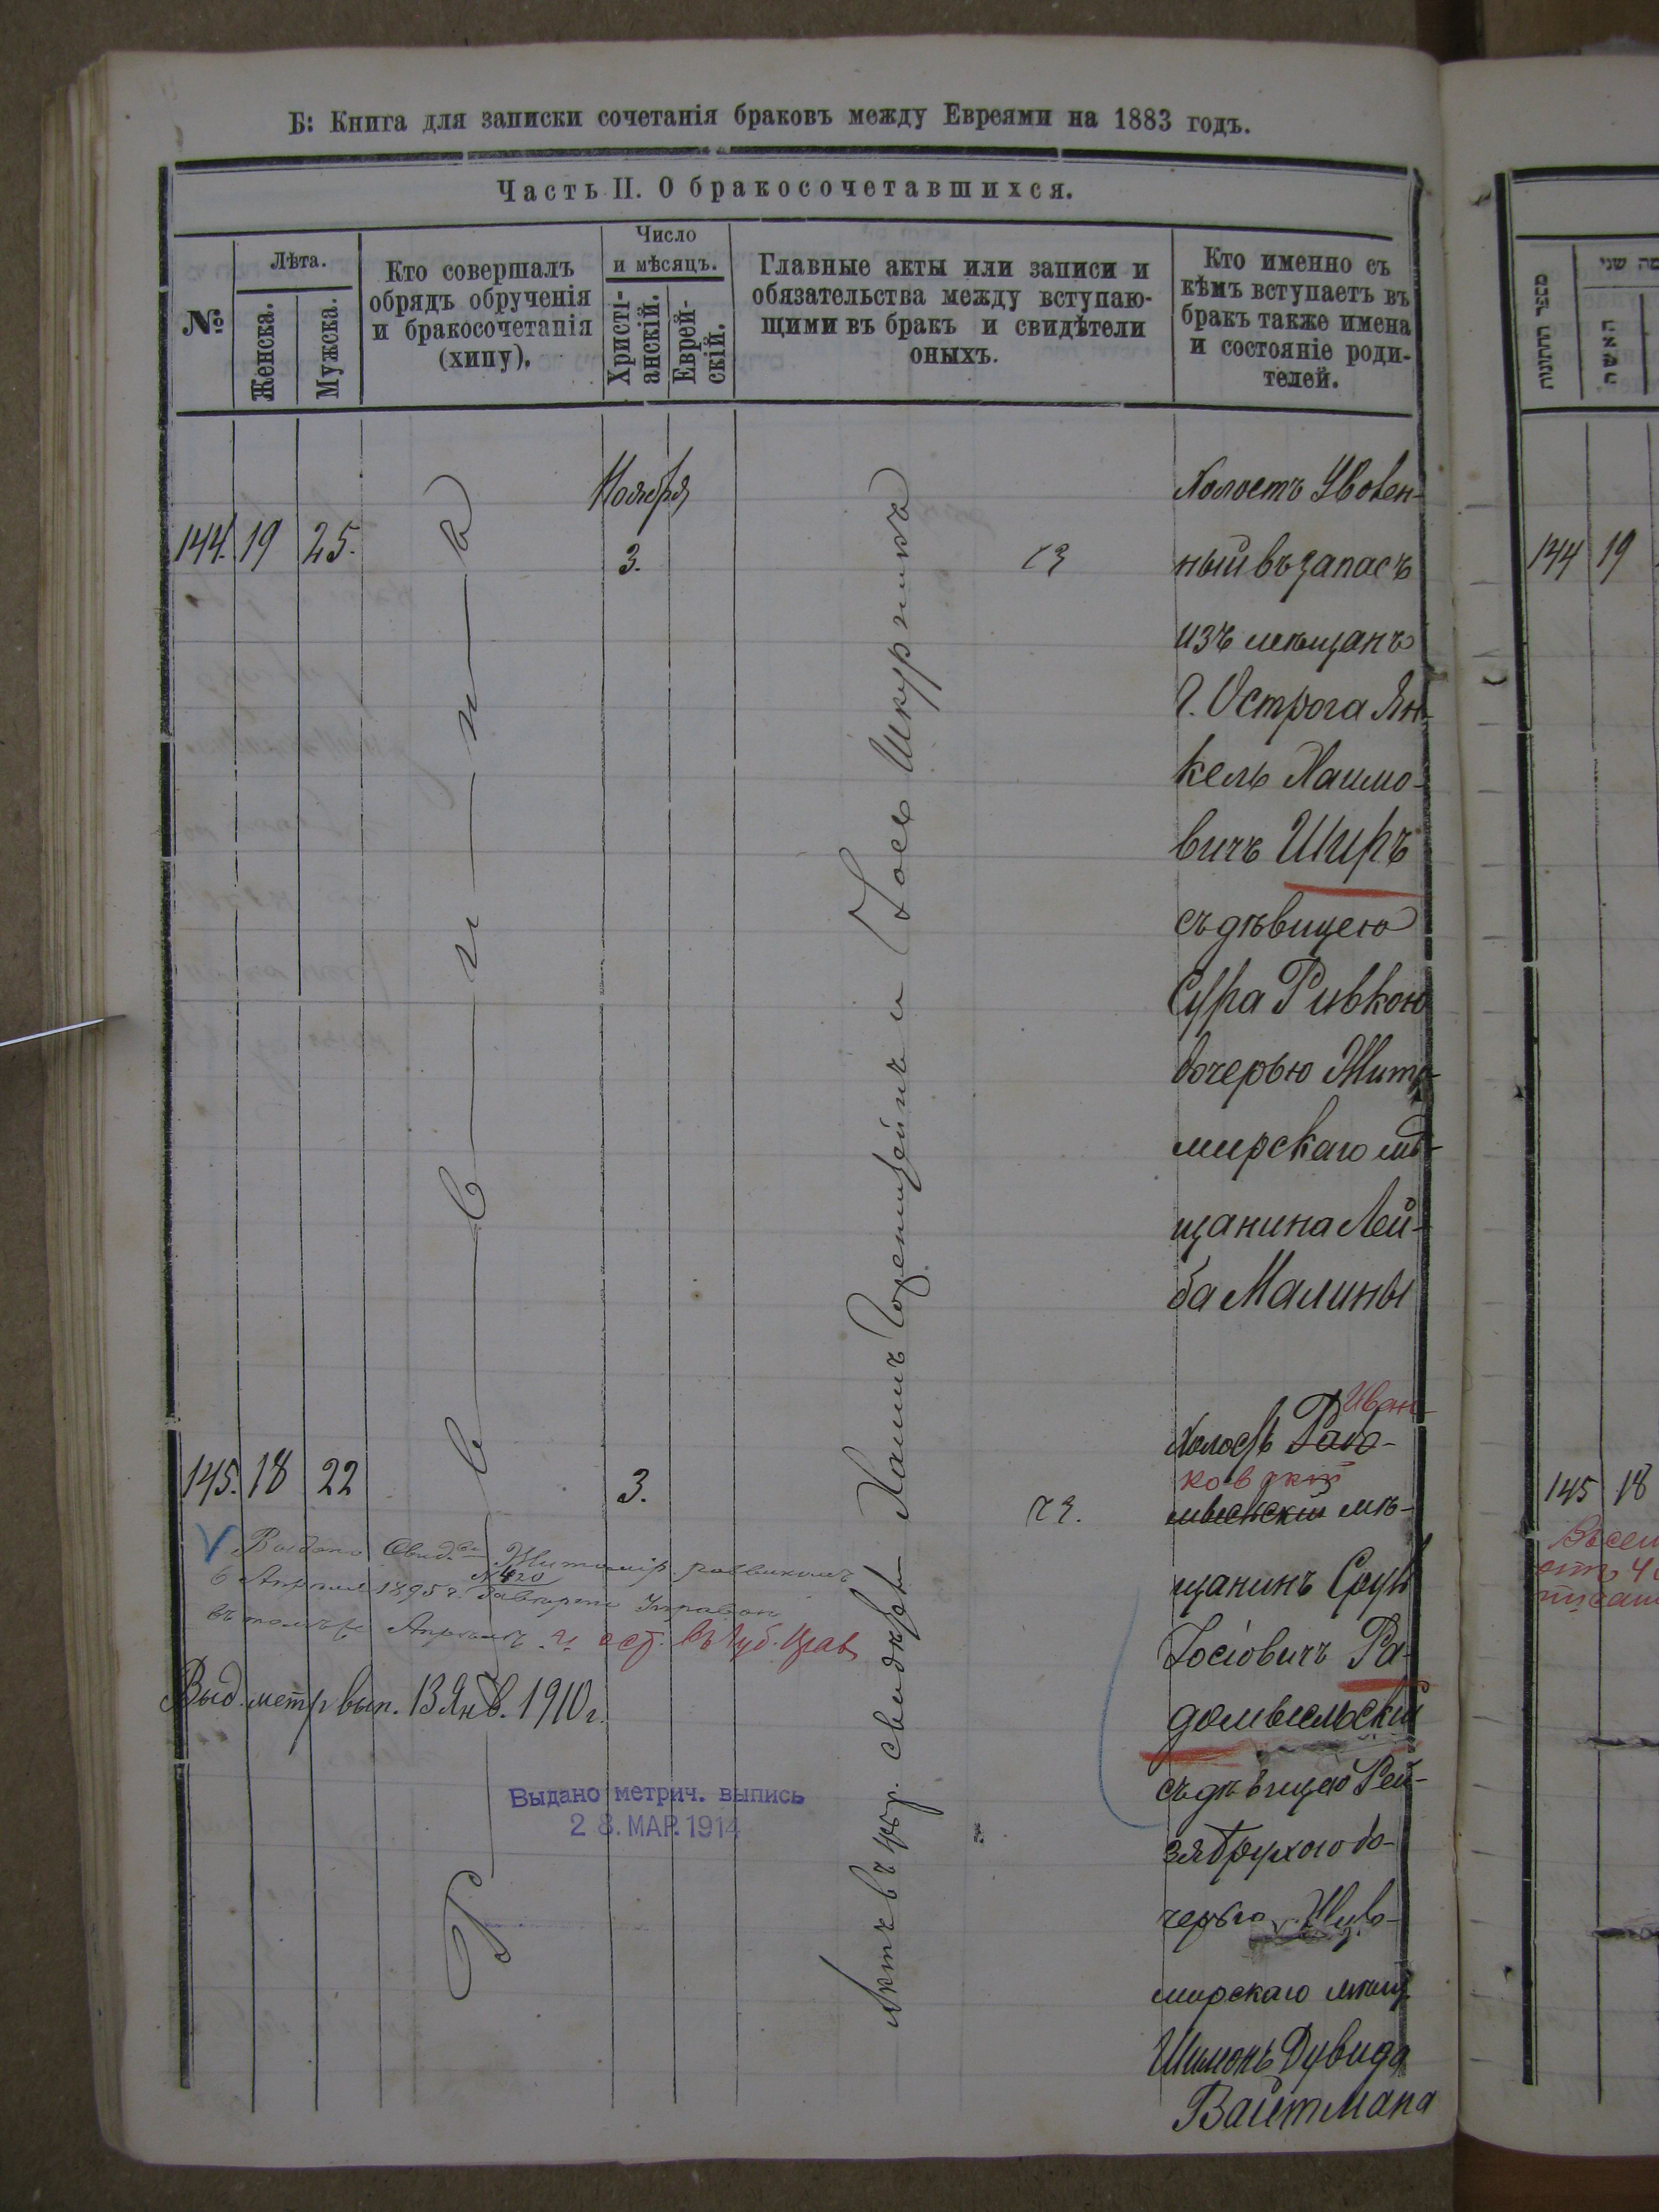 Б: Книга для записки сочетанія браковъ между Евреями на 1883 годъ.
Часть II. О бракосочетавшихся.
№
Лѣта.
Женска.
Мужска.
Кто совершалъ
обрядъ обрученія
и бракосочетанія
(хипу).
Число
и мѣсяцъ.
Христі-
анскій.
Еврей-
скій.
Главные акты или записи и
обязательства между вступаю-
щими въ бракъ и свидѣтели
оныхъ.
Кто именно съ
кѣмъ вступаетъ въ
бракъ также имена
и состояніе роди-
телей.
Ноября
144. 19 25. 3.
Раввина
Актъ въ
Хаимъ
и Іось Шкурникъ
Холостъ Уволен-
ный въ запасъ
изъ мѣщанъ
г. Острога Ян-
кель Хаимо-
вичъ Ширъ
съ дѣвицею
Сура Ривкою
дочерью Жито-
мирскаго мѣ-
щанина Лей-
ба Малины
145. 18 22 3.
Иван-
Холостъ Радо-
ковскій
мысльскій мѣ-
щанинъ Сруль
Іосіовичъ Ра-
домысльскій
съ дѣвицею Рей-
зя Брухою до-
черью Жито-
мирскаго мѣщ.
Шимонъ Дувида
Вайтмана
Выдано Свид. Житомір. раввиномъ
6 Апрѣля 1895 г. № 420
Апрѣлѣ
въ Губ. Прав
Выд. метр вып. 13 Янв. 1910 г.
Выдано метрич. выпись
28. МАР. 1914
מספר החתונות
האשה
144 19
145 18